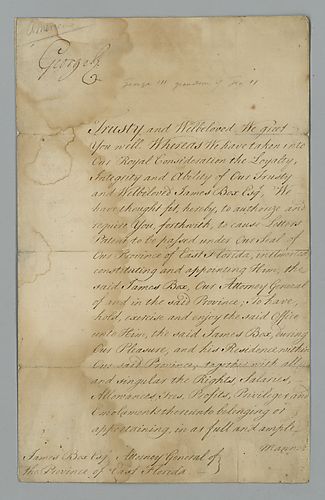 America
George R
George III grandson of Geo II
Trusty and Welbeloved We greet
You well. Whereas We have taken into
Our Royal Consideration the Loyalty,
Integrity and Ability of Our Trusty
and Welbeloved James Box Esqr. We
have thought fit, hereby, to authorize and
require You, forthwith, to cause Letters
Patent to be passed under Our Seal of
Our Province of East Florida,
constituting and appointing Him, the
said James Box, Our Attorney General
of and in the said Province; To have,
hold, exercise and enjoy the said Office
unto Him, the said James Box, during
Our Pleasure, and his Residence within
Our said Province, together with all
and singular the Rights, Salaries,
Allowances, Fees, Profits, Privileges and
Emoluments thereunto belonging or
appertaining, in as full and ample
Manner
James Box Esqr Attorney General of
the Province of East Florida